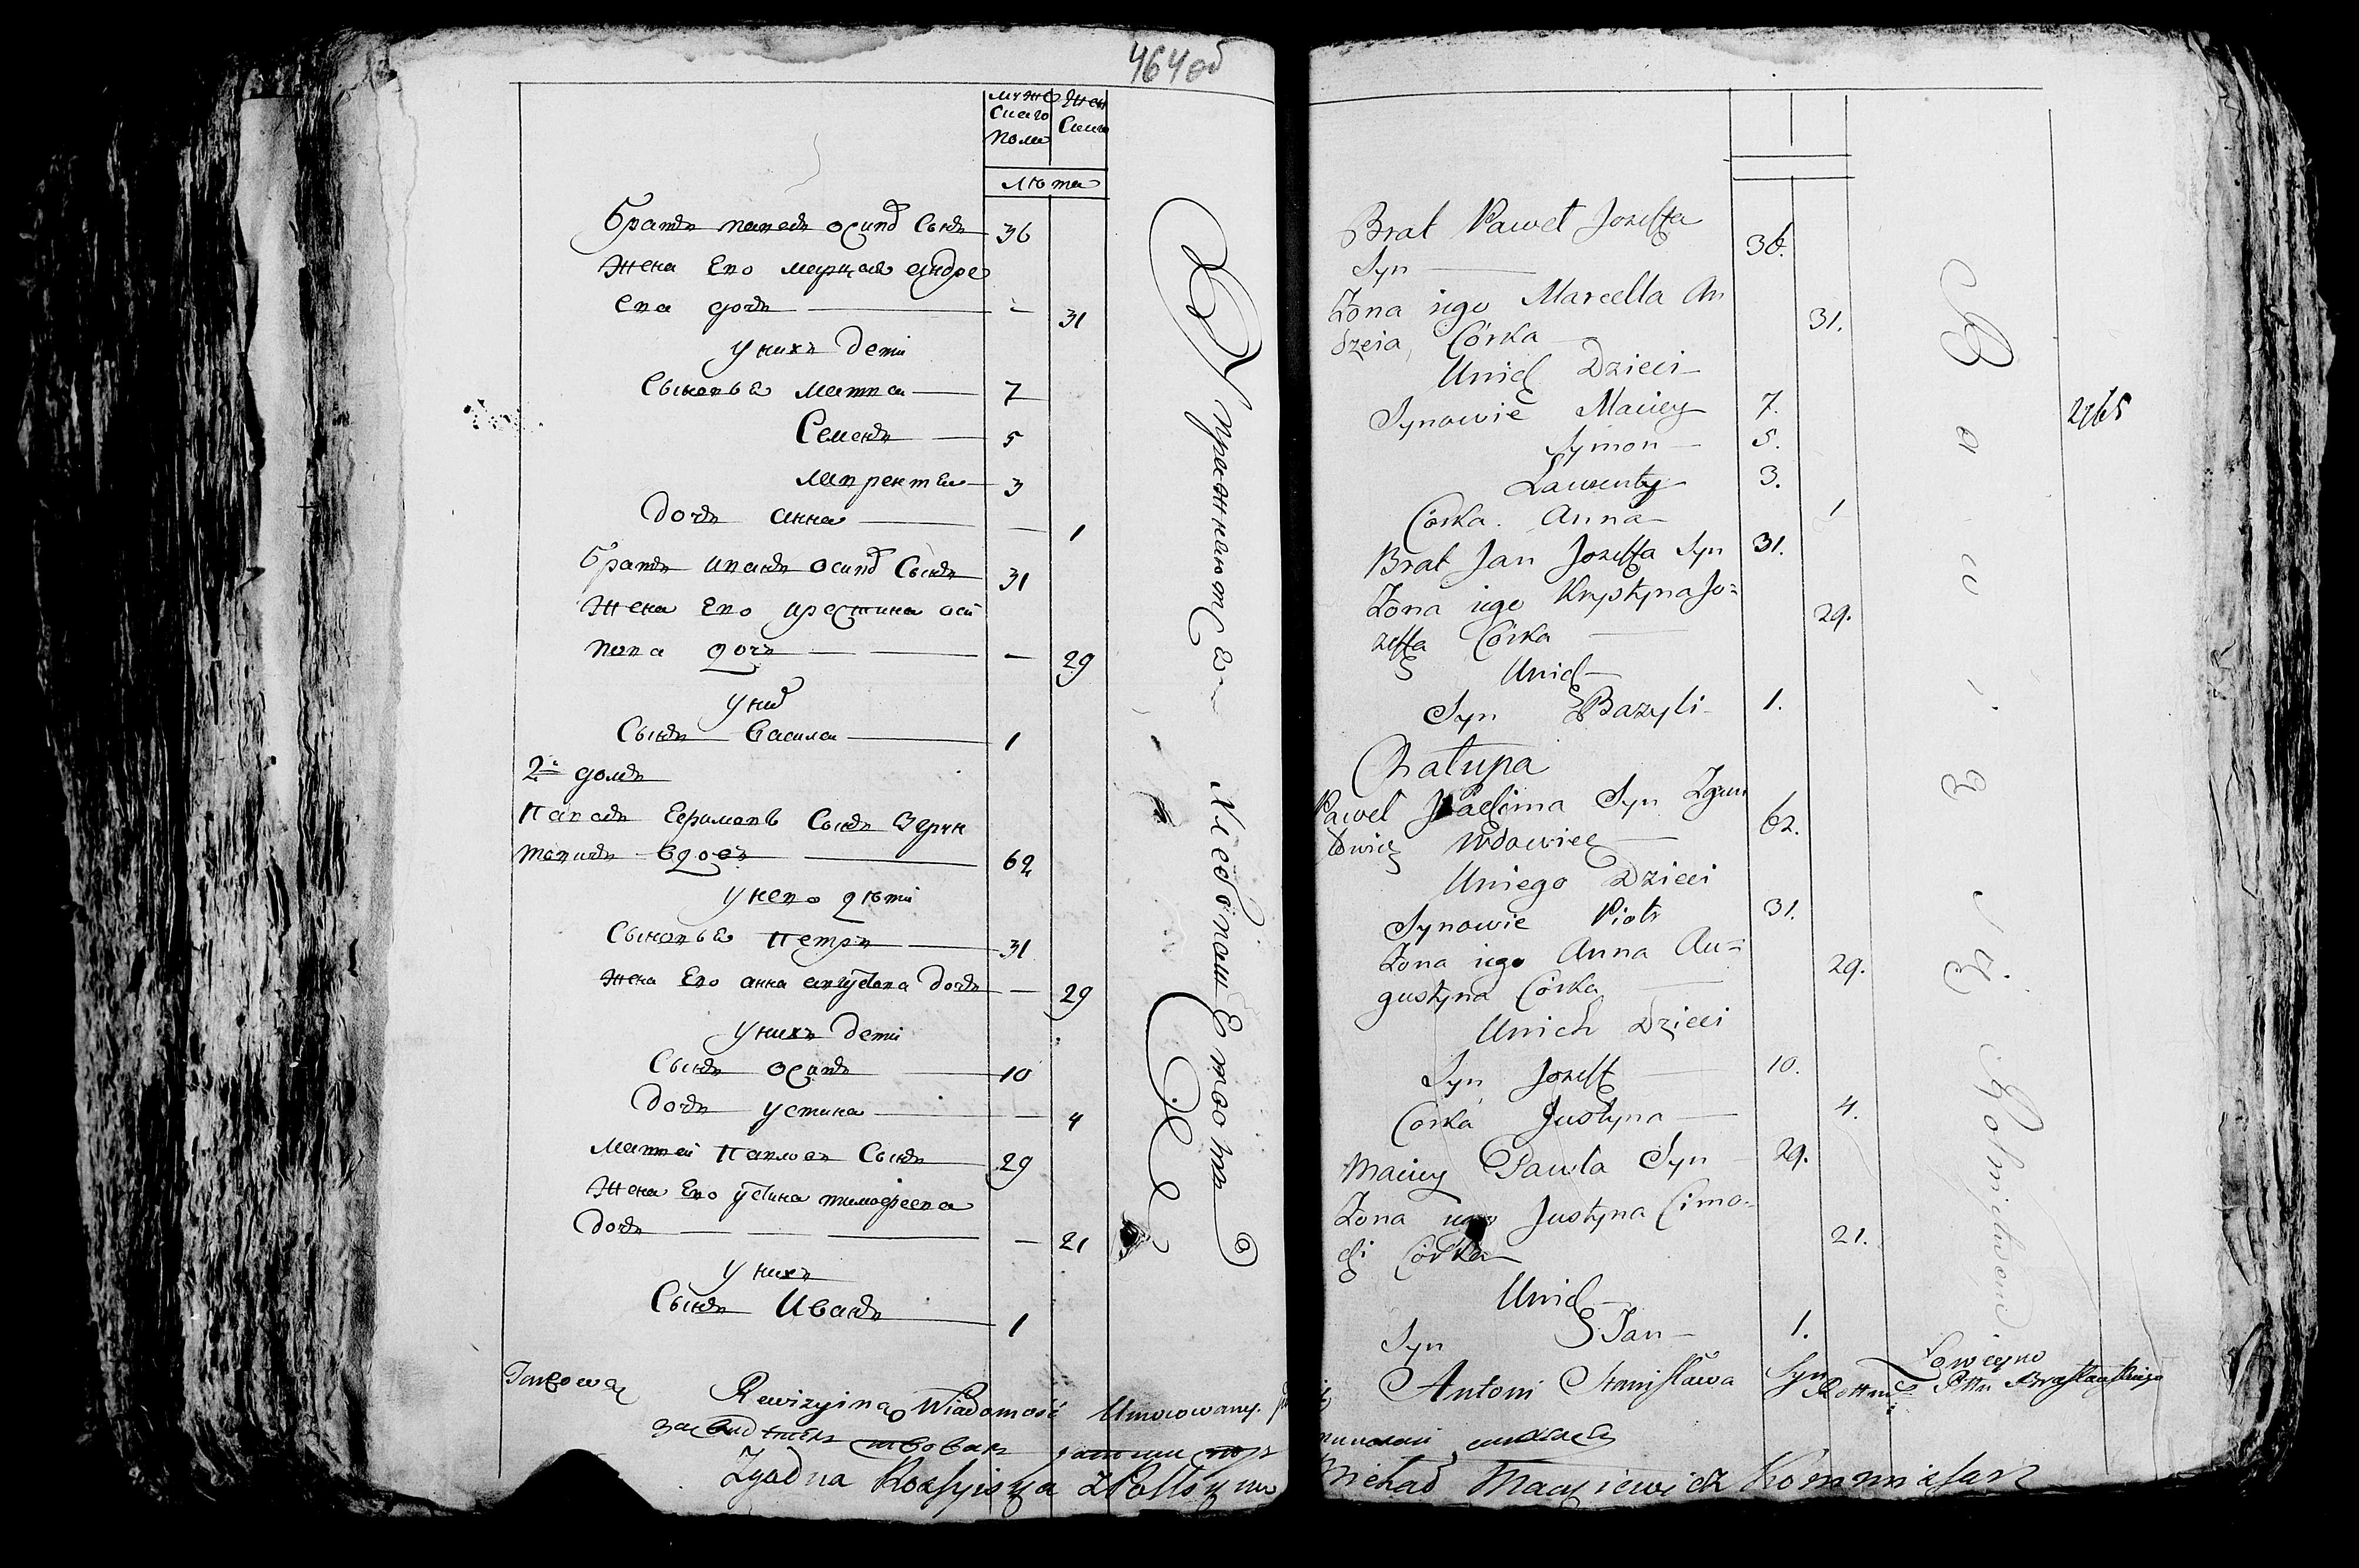 464 об
мужс
каго
пола
Жен
скаго
лѣта
Братъ павелъ осипа Сынъ 36
Жена Его марцеля андре
ева дочь — 31
у нихъ дети
Сыновья матвей 7
Семенъ 5
лаврентей 3
дочь анна — 1
братъ иванъ осипа Сынъ 31
Жена Его крестина оси
пова дочь — 29
у них
Сынъ василей 1
2й домъ
Павелъ Ефимовъ Сынъ
вдовъ 62
у него дѣти
Сыновья Петръ 31
Жена Его анна августова дочь — 29
у нихъ дети
Сынъ осипъ 10
дочь устина — 4
Матвей Павловъ Сынъ 29
Жена Его устина тимофеева
дочь — 21
у нихъ
Сынъ Иванъ 1
Упражняются
Хлебопашеством
Brat Paweł Jozeffa
Syn 36.
Żona iego Marcella An
dzeia Córka 31.
Unich Dzieci
Synowie Maciey 7.
Symon 5.
Laurenty 3.
Córka. Anna 1
Brat Jan Jozeffa Syn 31.
Żona iego Krystyna Jo=
zeffa Córka 29.
Unich
Syn Bazyli 1.
Chałupa
Paweł Jachima Syn
Wdowiec 62.
Uniego Dzieci
Synowie Piotr 31.
Żona iego Anna Au=
gustyna Córka 29.
Unich Dzieci
Syn Jozeff 10.
Córka Justyna 4.
Maciey Pawła Syn 29.
Żona iego Justyna Cimo=
chi Córka 21.
Unich
Syn Jan 1.
Bawią się Rolnictwem
2265
Rewizyina Wiadomość Umocowany
Antoni Stanisława Syn
Pttu Brasławskiego
Zgodna Rossyiska z Polską
Michał Mackiewicz Kommissarz